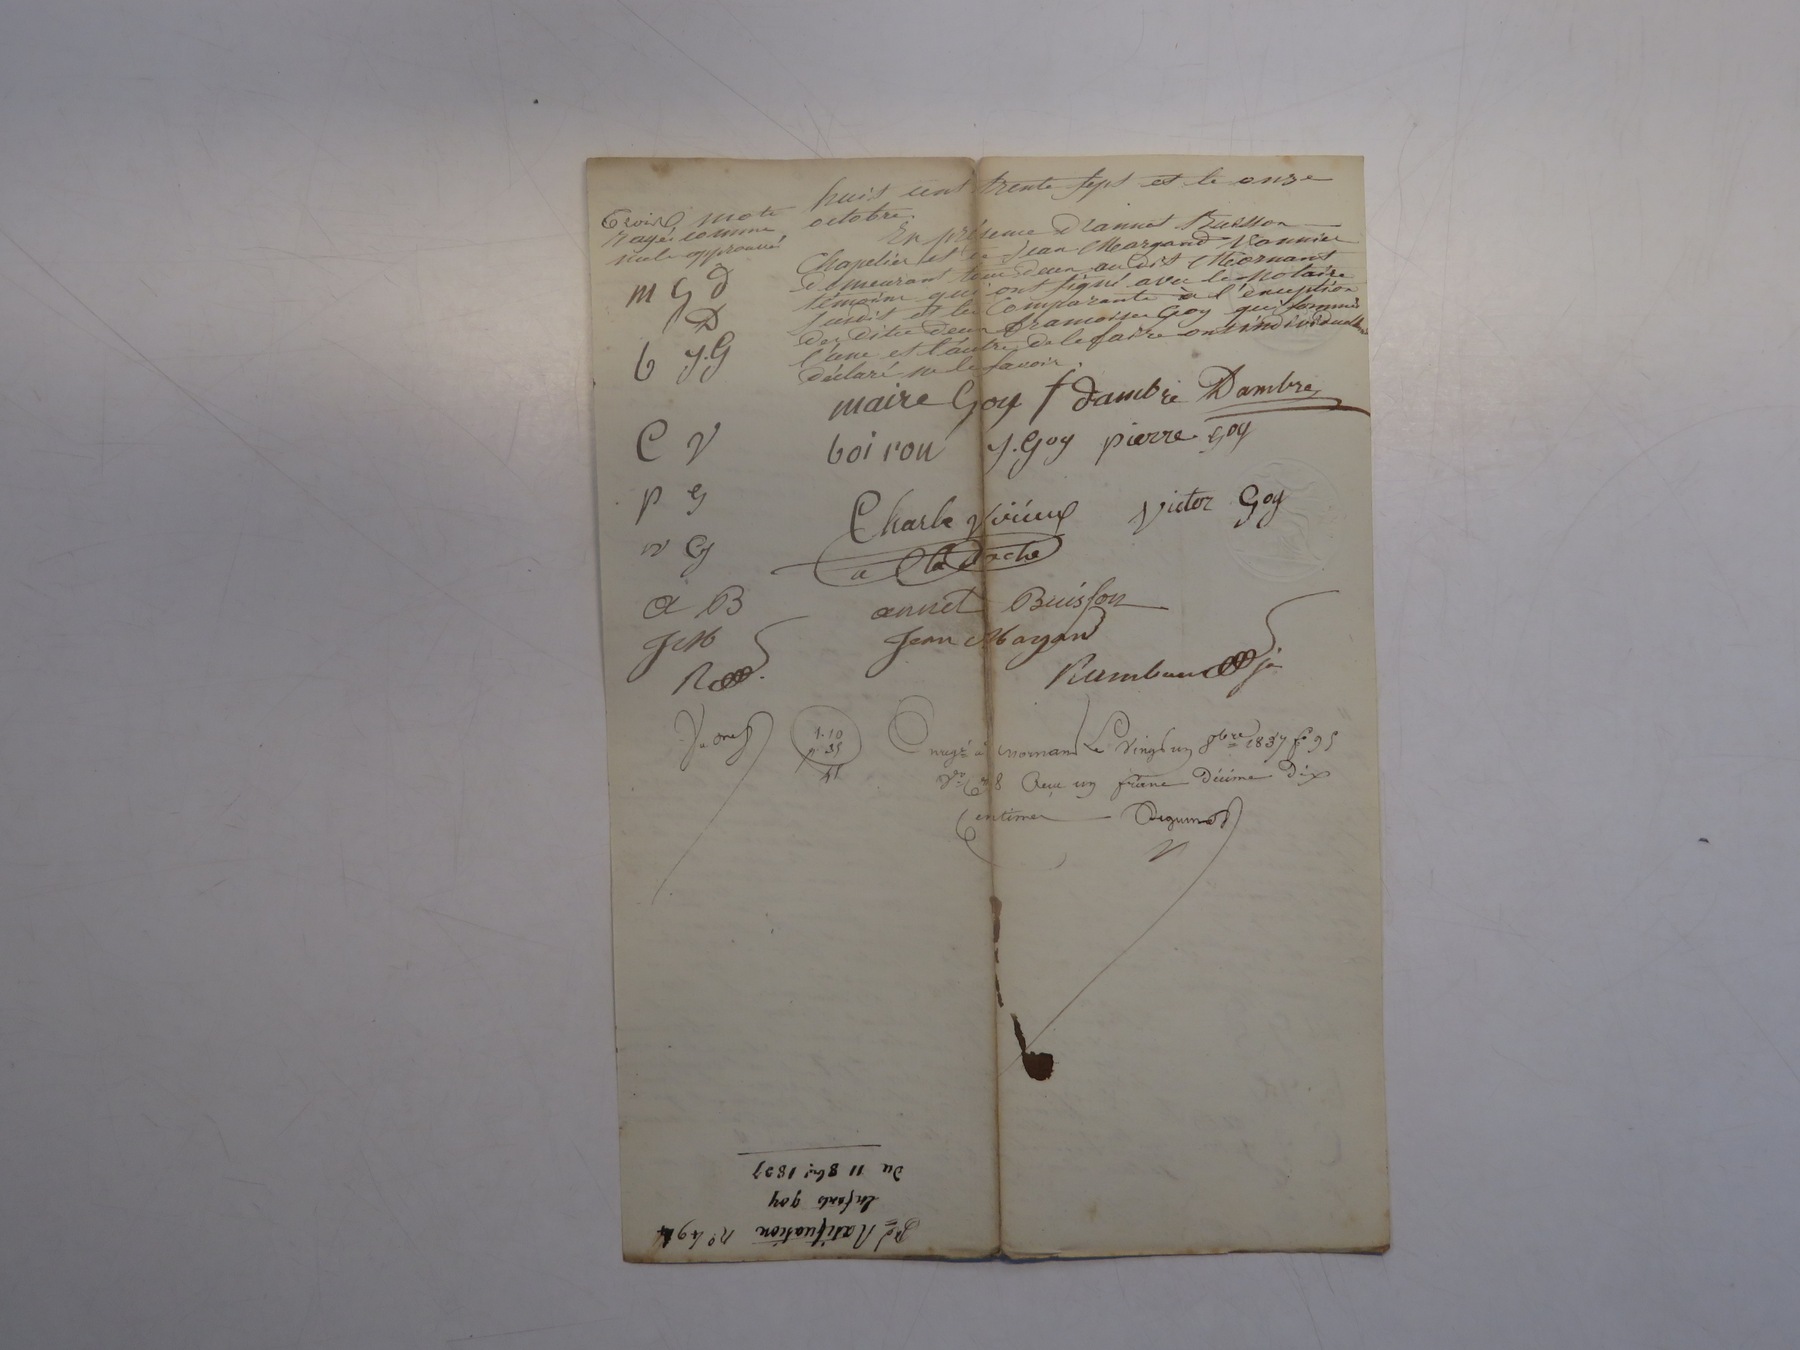 huit cent trente sept et le onze
octobre.
Trois mots
rayés comme
nuls approuvés
En présence d'annet Buisson
Chapelier et de Jean Margand Vannier
demeurant tous deux au dit Mornant
témoins qui ont signé avec le Notaire
susdit et les Comparants à l'exception
des dites deux françoises Goy qui sommés
l'une et l'autre de le faire ont individuellement
déclaré ne le savoir.
m G d
D
b J.G
C V
p G
v G
A B
J M
R
maire Goy f dambre Dambre
boiron J. Goy pierre Goy
Charle Virieux Victor Goy
annet Buisson
Jean Margand
Rambaud
1.10
p. 35
Enregré à mornant Le Vingt un 8bre 1837 fo 95
Vo Reçu un franc décime dix
Centimes
Rd Ratification No 494
Enfants goy
du 11 8bre 1837